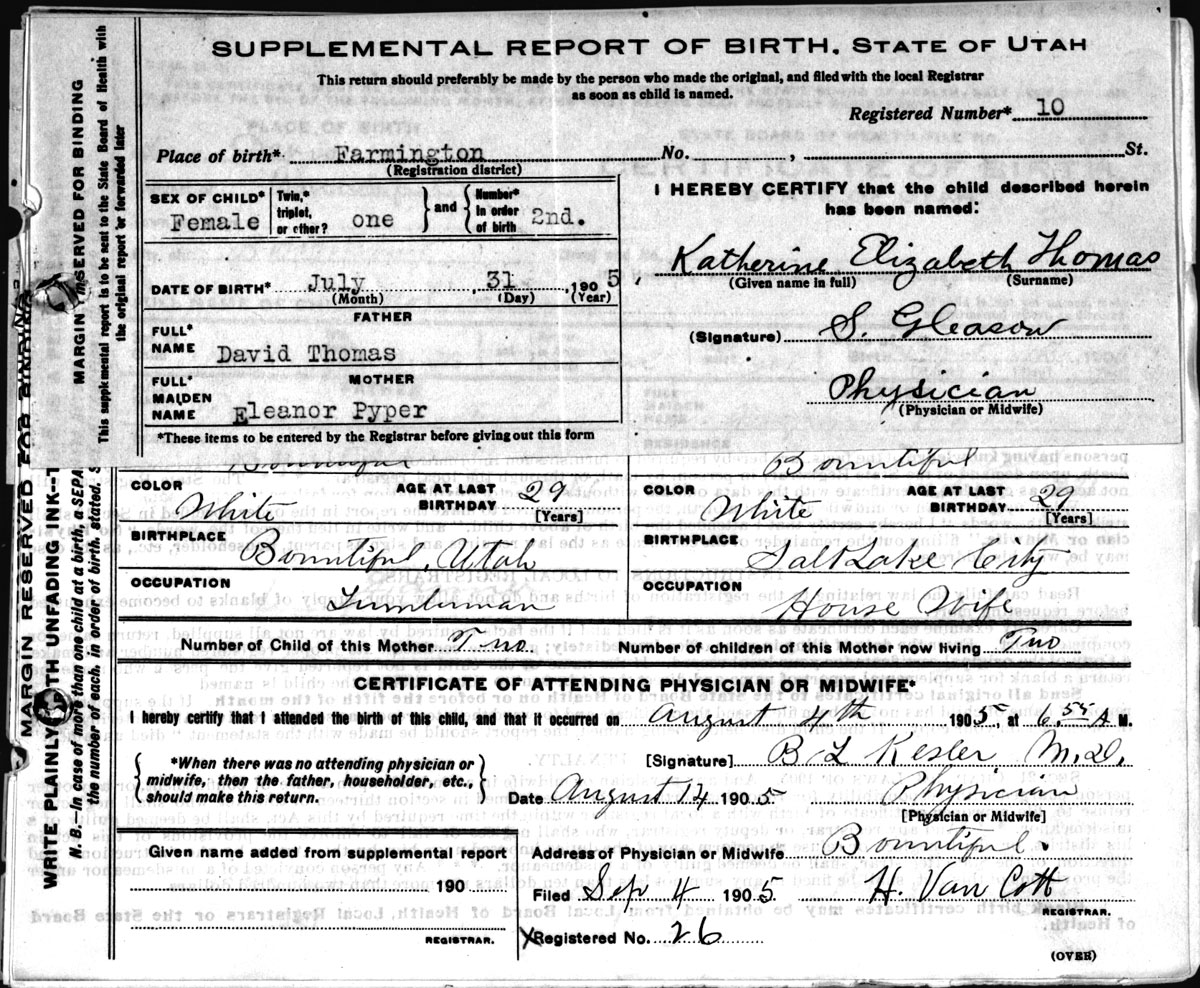 SUPPLEMENTAL REPORT OF BIRTH. STATE OF UTAH
This return should preferably be made by the person who made the original, and filed with the local Registrar
as soon as child is named.
Registered Number* 10
Place of birth* Farmington No. , St.
(Registration district)
SEX OF CHILD* Female
Twin,* triplet, or other? one
and
Number* in order of birth 2nd.
DATE OF BIRTH* July 31 , 1905
(Month) (Day) (Year)
FATHER
FULL* NAME David Thomas
MOTHER
FULL* MAIDEN NAME Eleanor Pyper
*These items to be entered by the Registrar before giving out this form
I HEREBY CERTIFY that the child described herein
has been named:
Katherine Elizabeth Thomas
(Given name in full) (Surname)
(Signature) S. Gleason
Physician
(Physician or Midwife)
MARGIN RESERVED FOR BINDING
This supplemental report is to be sent to the State Board of Health with
the original report or forwarded later
MARGIN RESERVED FOR BINDING
WRITE PLAINLY WITH UNFADING INK--T
N. B.—In case of more than one child at a birth, a SEPA
the number of each, in order of birth, stated. S
Bountiful
Bountiful
COLOR White
AGE AT LAST BIRTHDAY 29
[Years]
COLOR White
AGE AT LAST BIRTHDAY 29
[Years]
BIRTHPLACE Bountiful, Utah
BIRTHPLACE Salt Lake City
OCCUPATION Lumberman
OCCUPATION House Wife
Number of Child of this Mother Two
Number of children of this Mother now living Two
CERTIFICATE OF ATTENDING PHYSICIAN OR MIDWIFE*
I hereby certify that I attended the birth of this child, and that it occurred on August 4th 1905, at 6.55 A M.
*When there was no attending physician or
midwife, then the father, householder, etc.,
should make this return.
[Signature] B L Kesler M.D.
Date August 12 1905 Physician
[Physician or Midwife]
Given name added from supplemental report
190
REGISTRAR.
Address of Physician or Midwife Bountiful
Filed Sep 4 1905. H. Van Cott
REGISTRAR.
X Registered No. 26
(OVER)